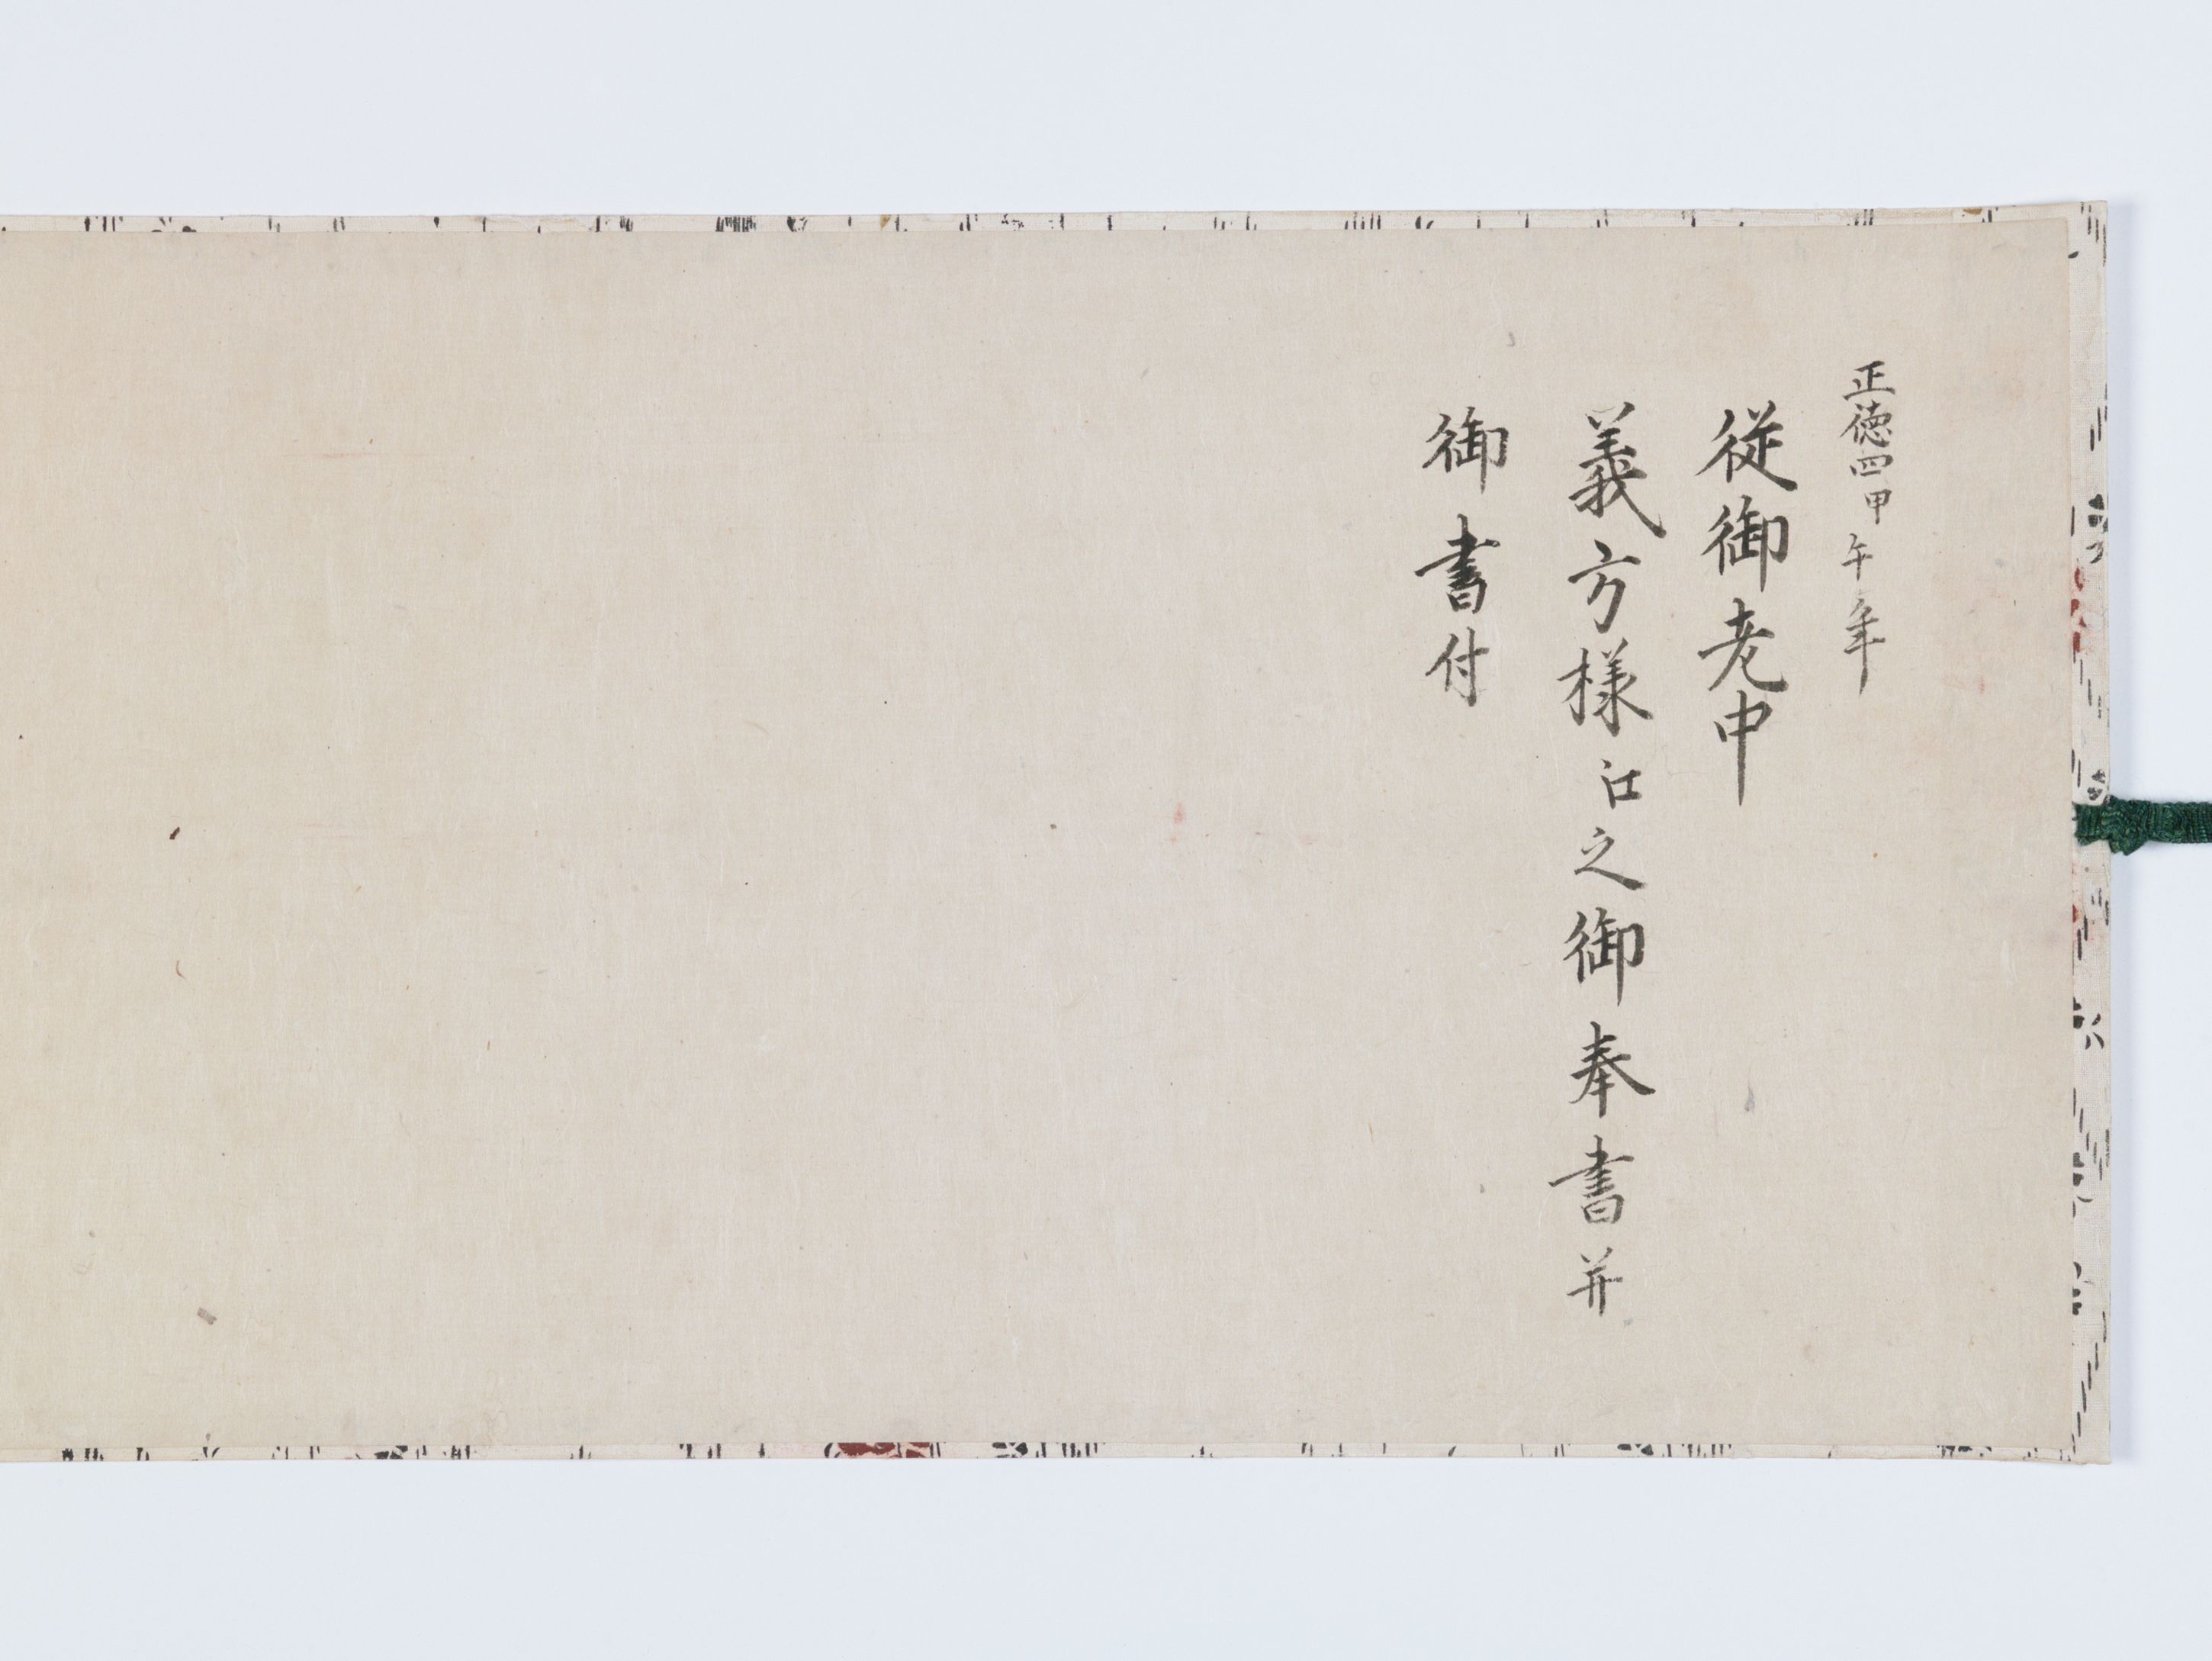 正徳四甲午年
従御老中
義方様江之御奉書并
御書付